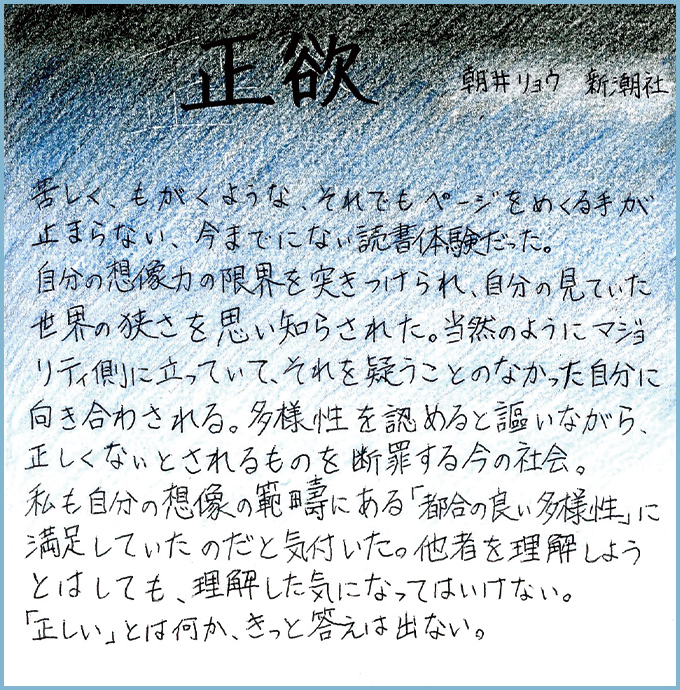 正欲
朝井リョウ 新潮社
苦しく、もがくような、それでもページをめくる手が
止まらない、今までにない読書体験だった。
自分の想像力の限界を突きつけられ、自分の見ていた
世界の狭さを思い知らされた。当然のようにマジョ
リティ側に立っていて、それを疑うことのなかった自分に
向き合わされる。多様性を認めると謳いながら、
正しくないとされるものを断罪する今の社会。
私も自分の想像の範疇にある「都合の良い多様性」に
満足していたのだと気付いた。他者を理解しよう
とはしても、理解した気になってはいけない。
「正しい」とは何か、きっと答えは出ない。